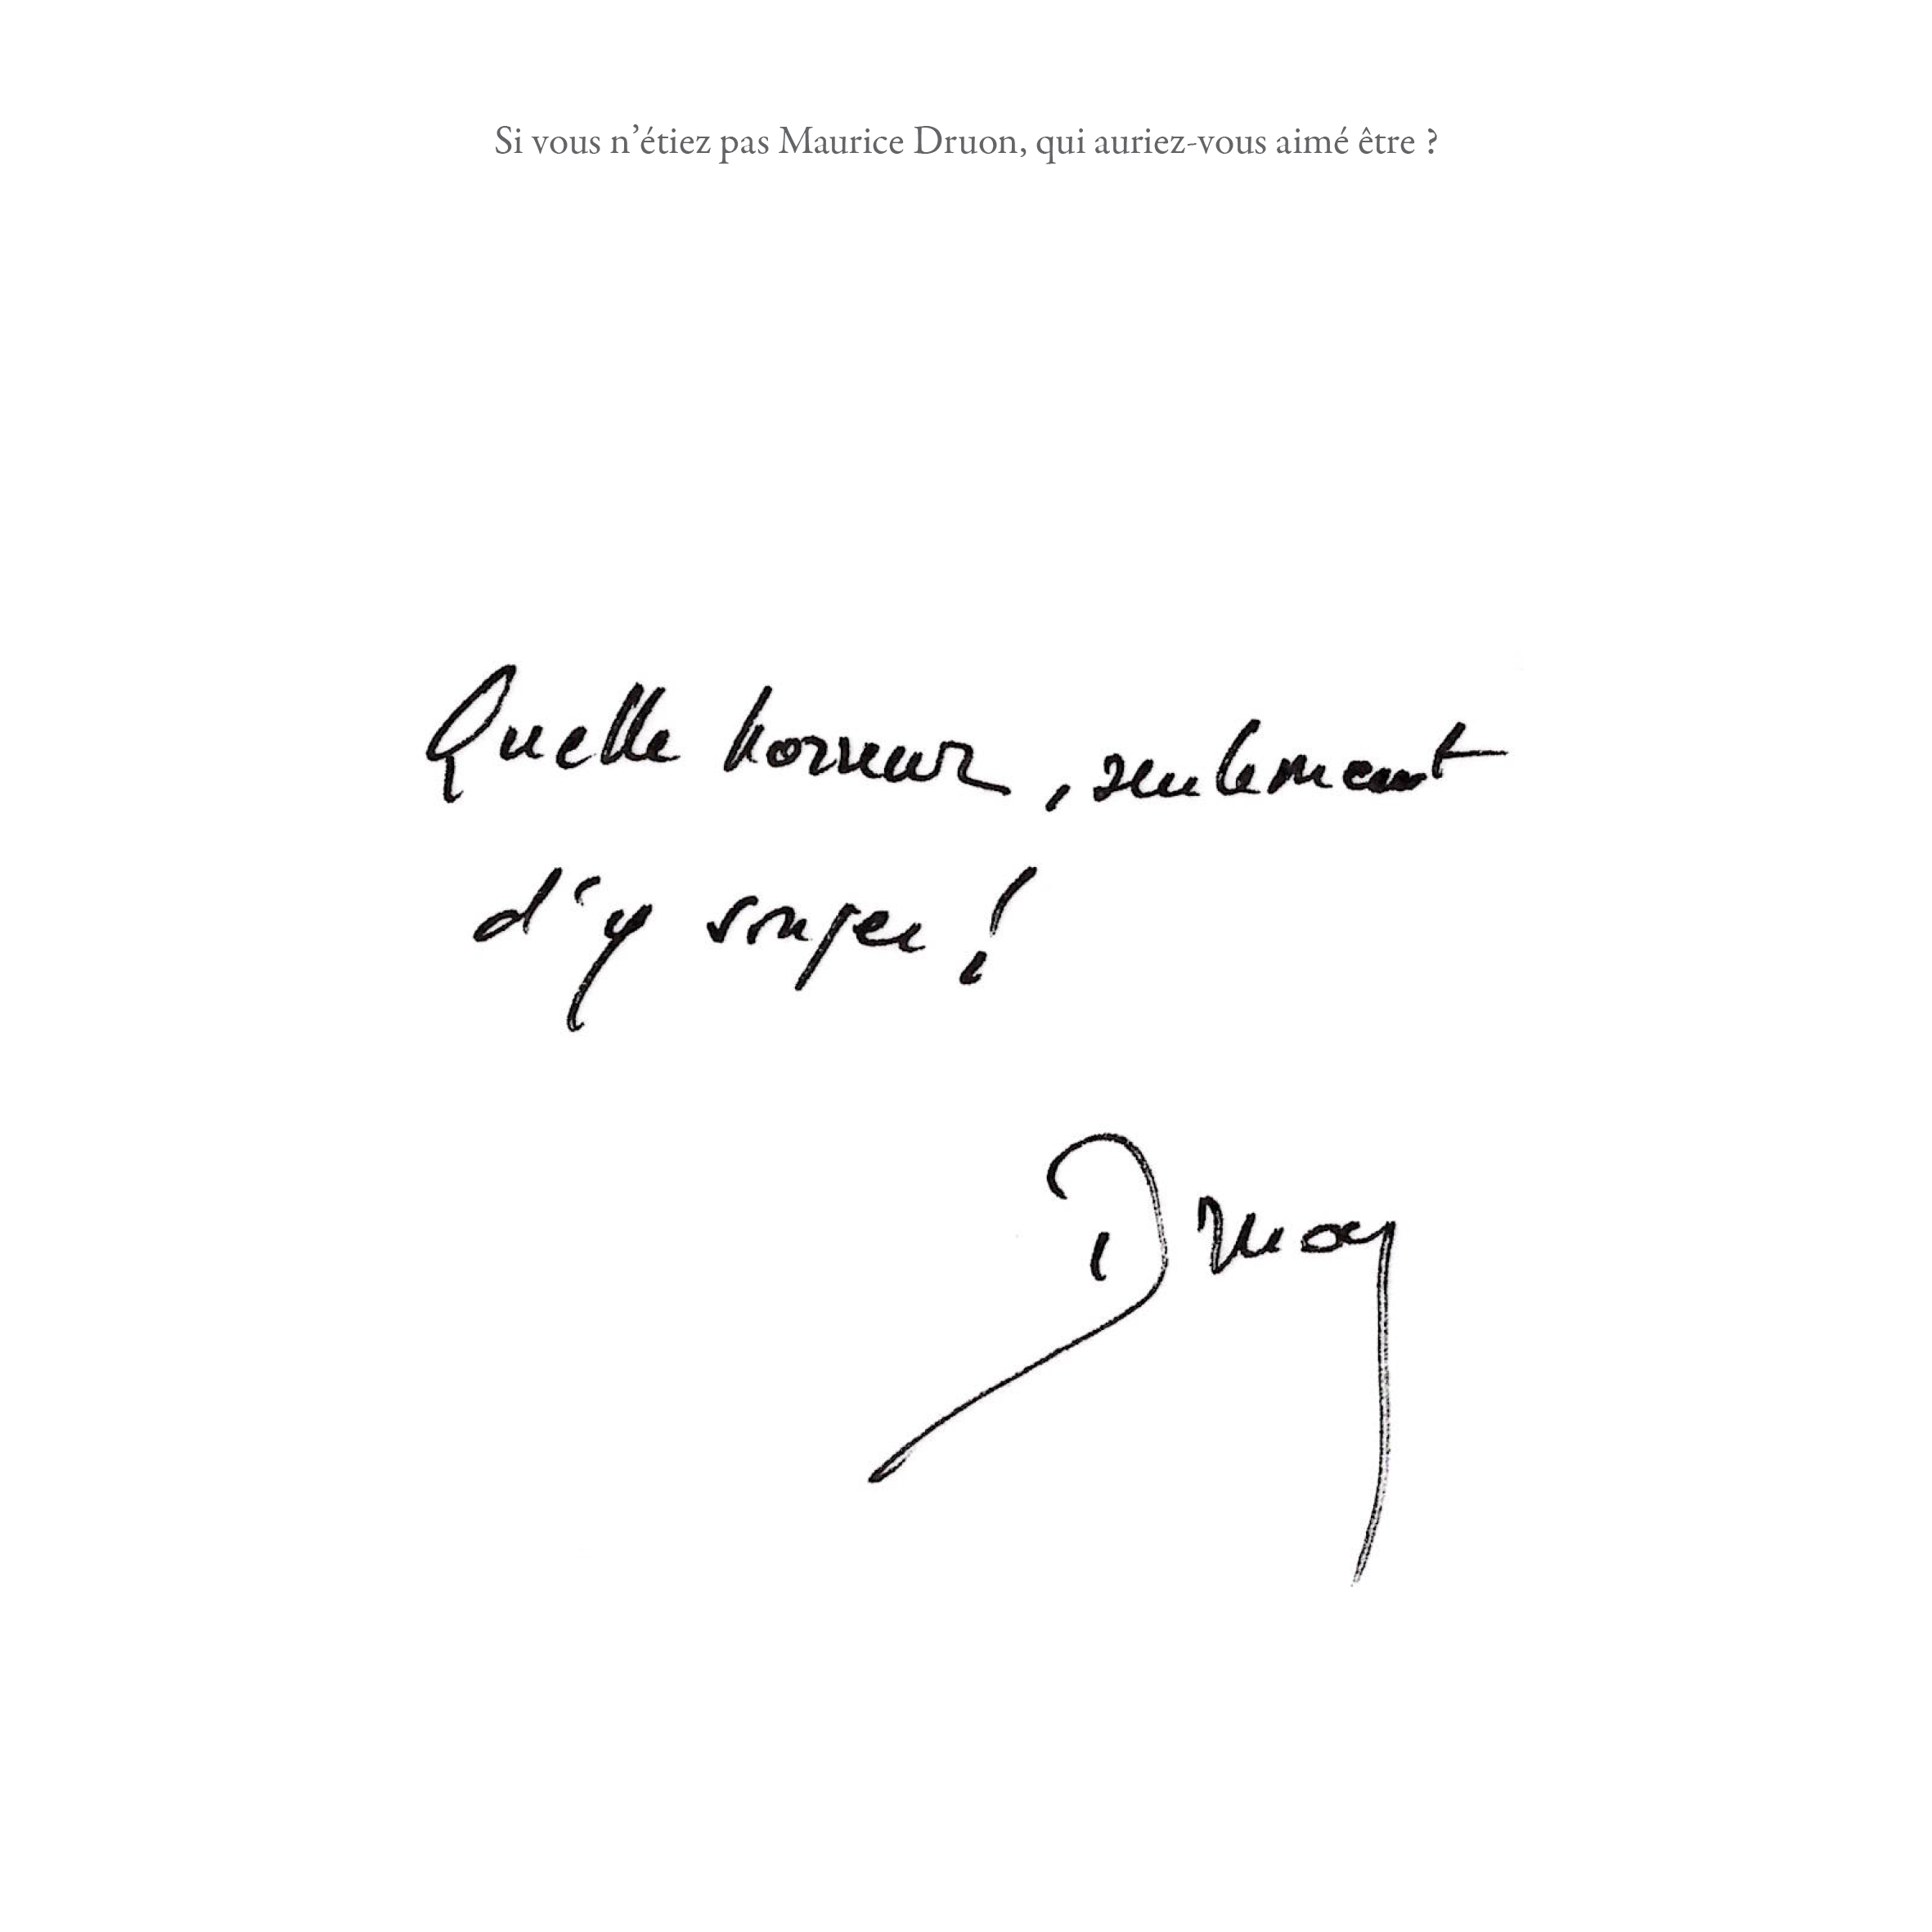 Si vous n’étiez pas Maurice Druon, qui auriez-vous aimé être ?
Quelle horreur, seulement
d'y songer !
Druon